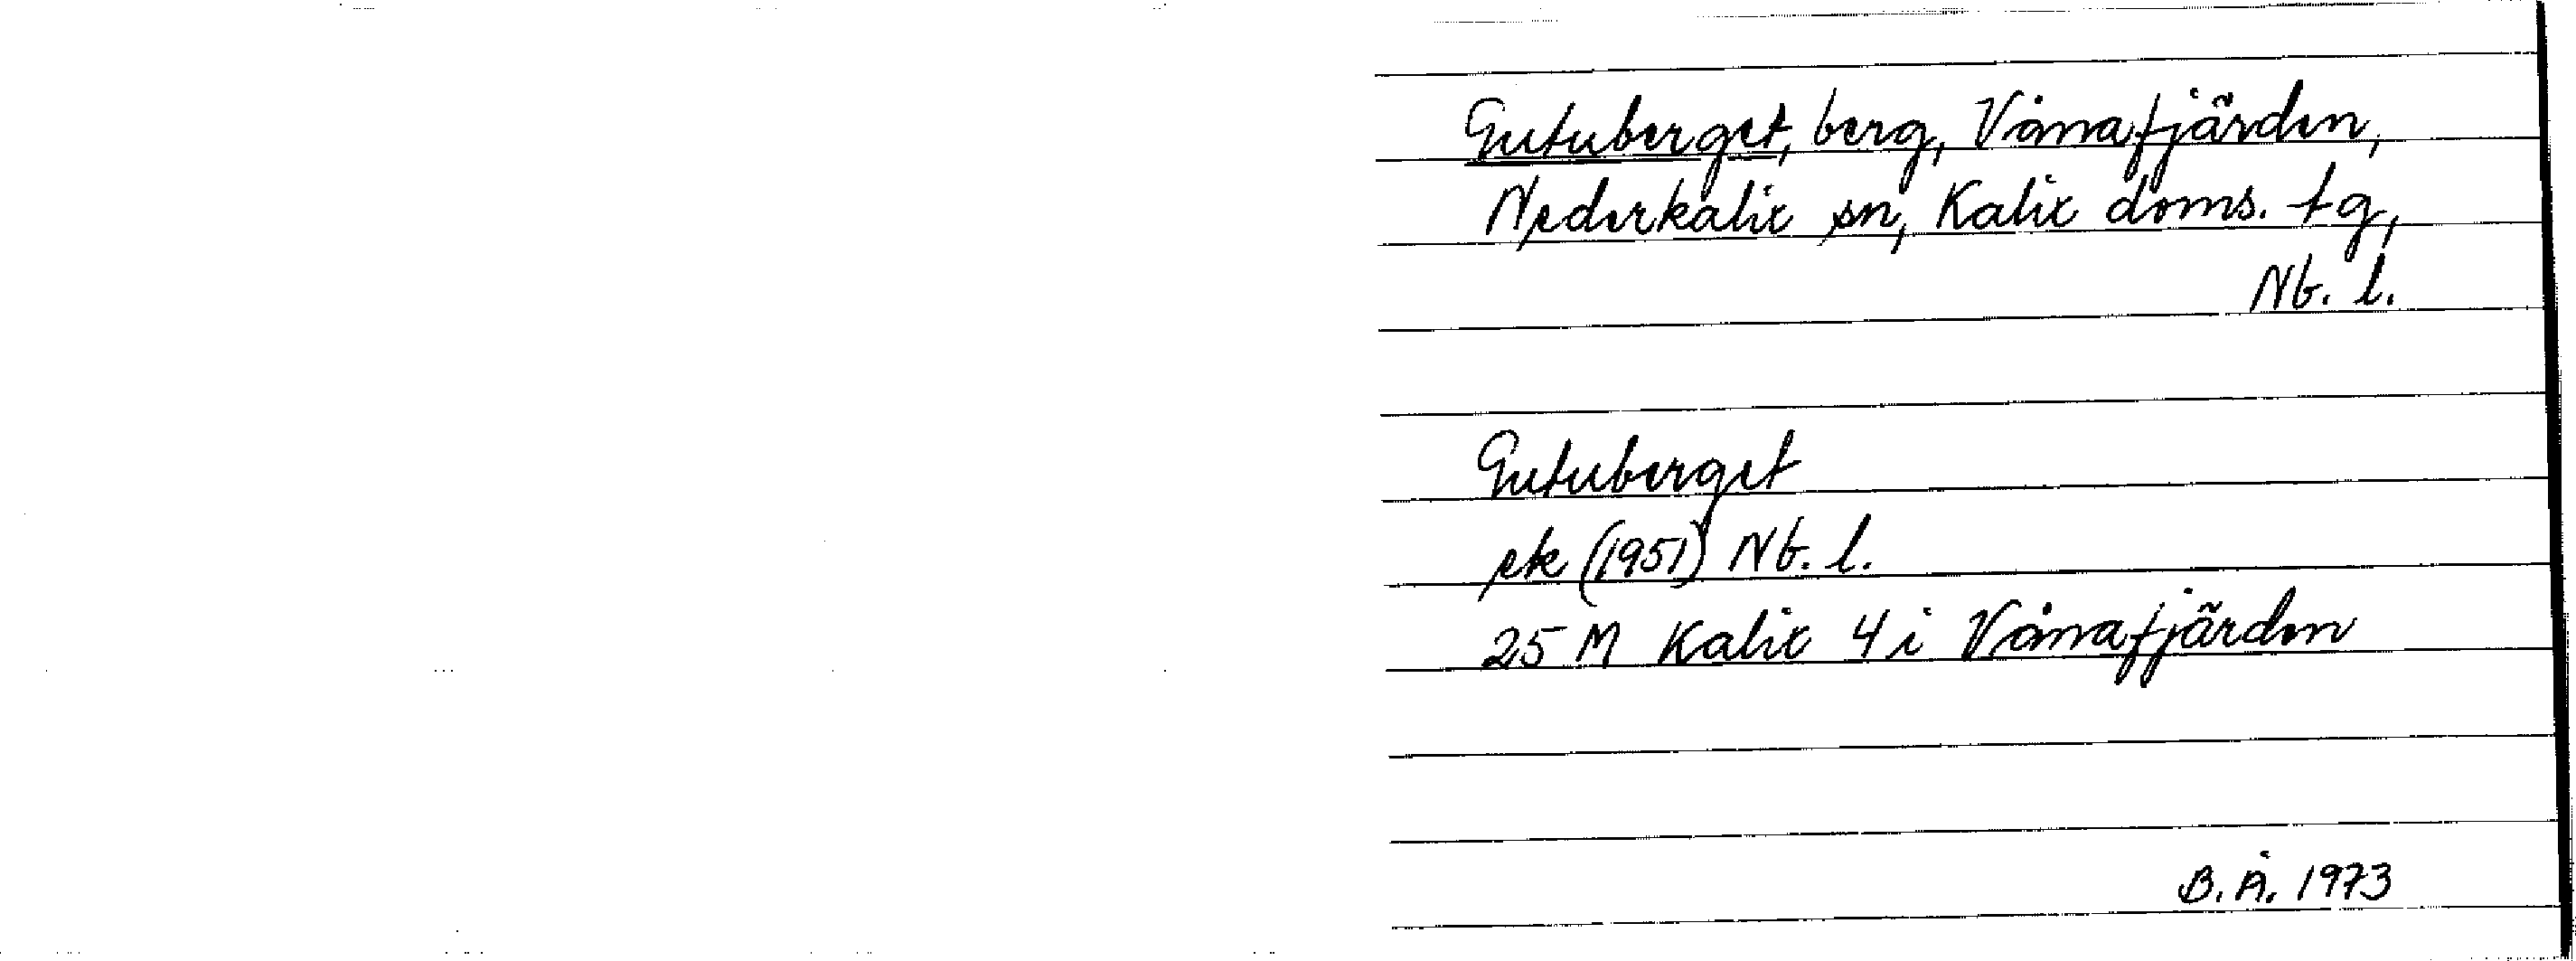 Gutuberget, berg, Vånafjärden,
Nederkalix sn, Kalix doms. tg,
Nb. l.
Gutuberget
ek (1951) Nb. l.
25 M Kalix 4 i Vånafjärden
B. Å. 1973